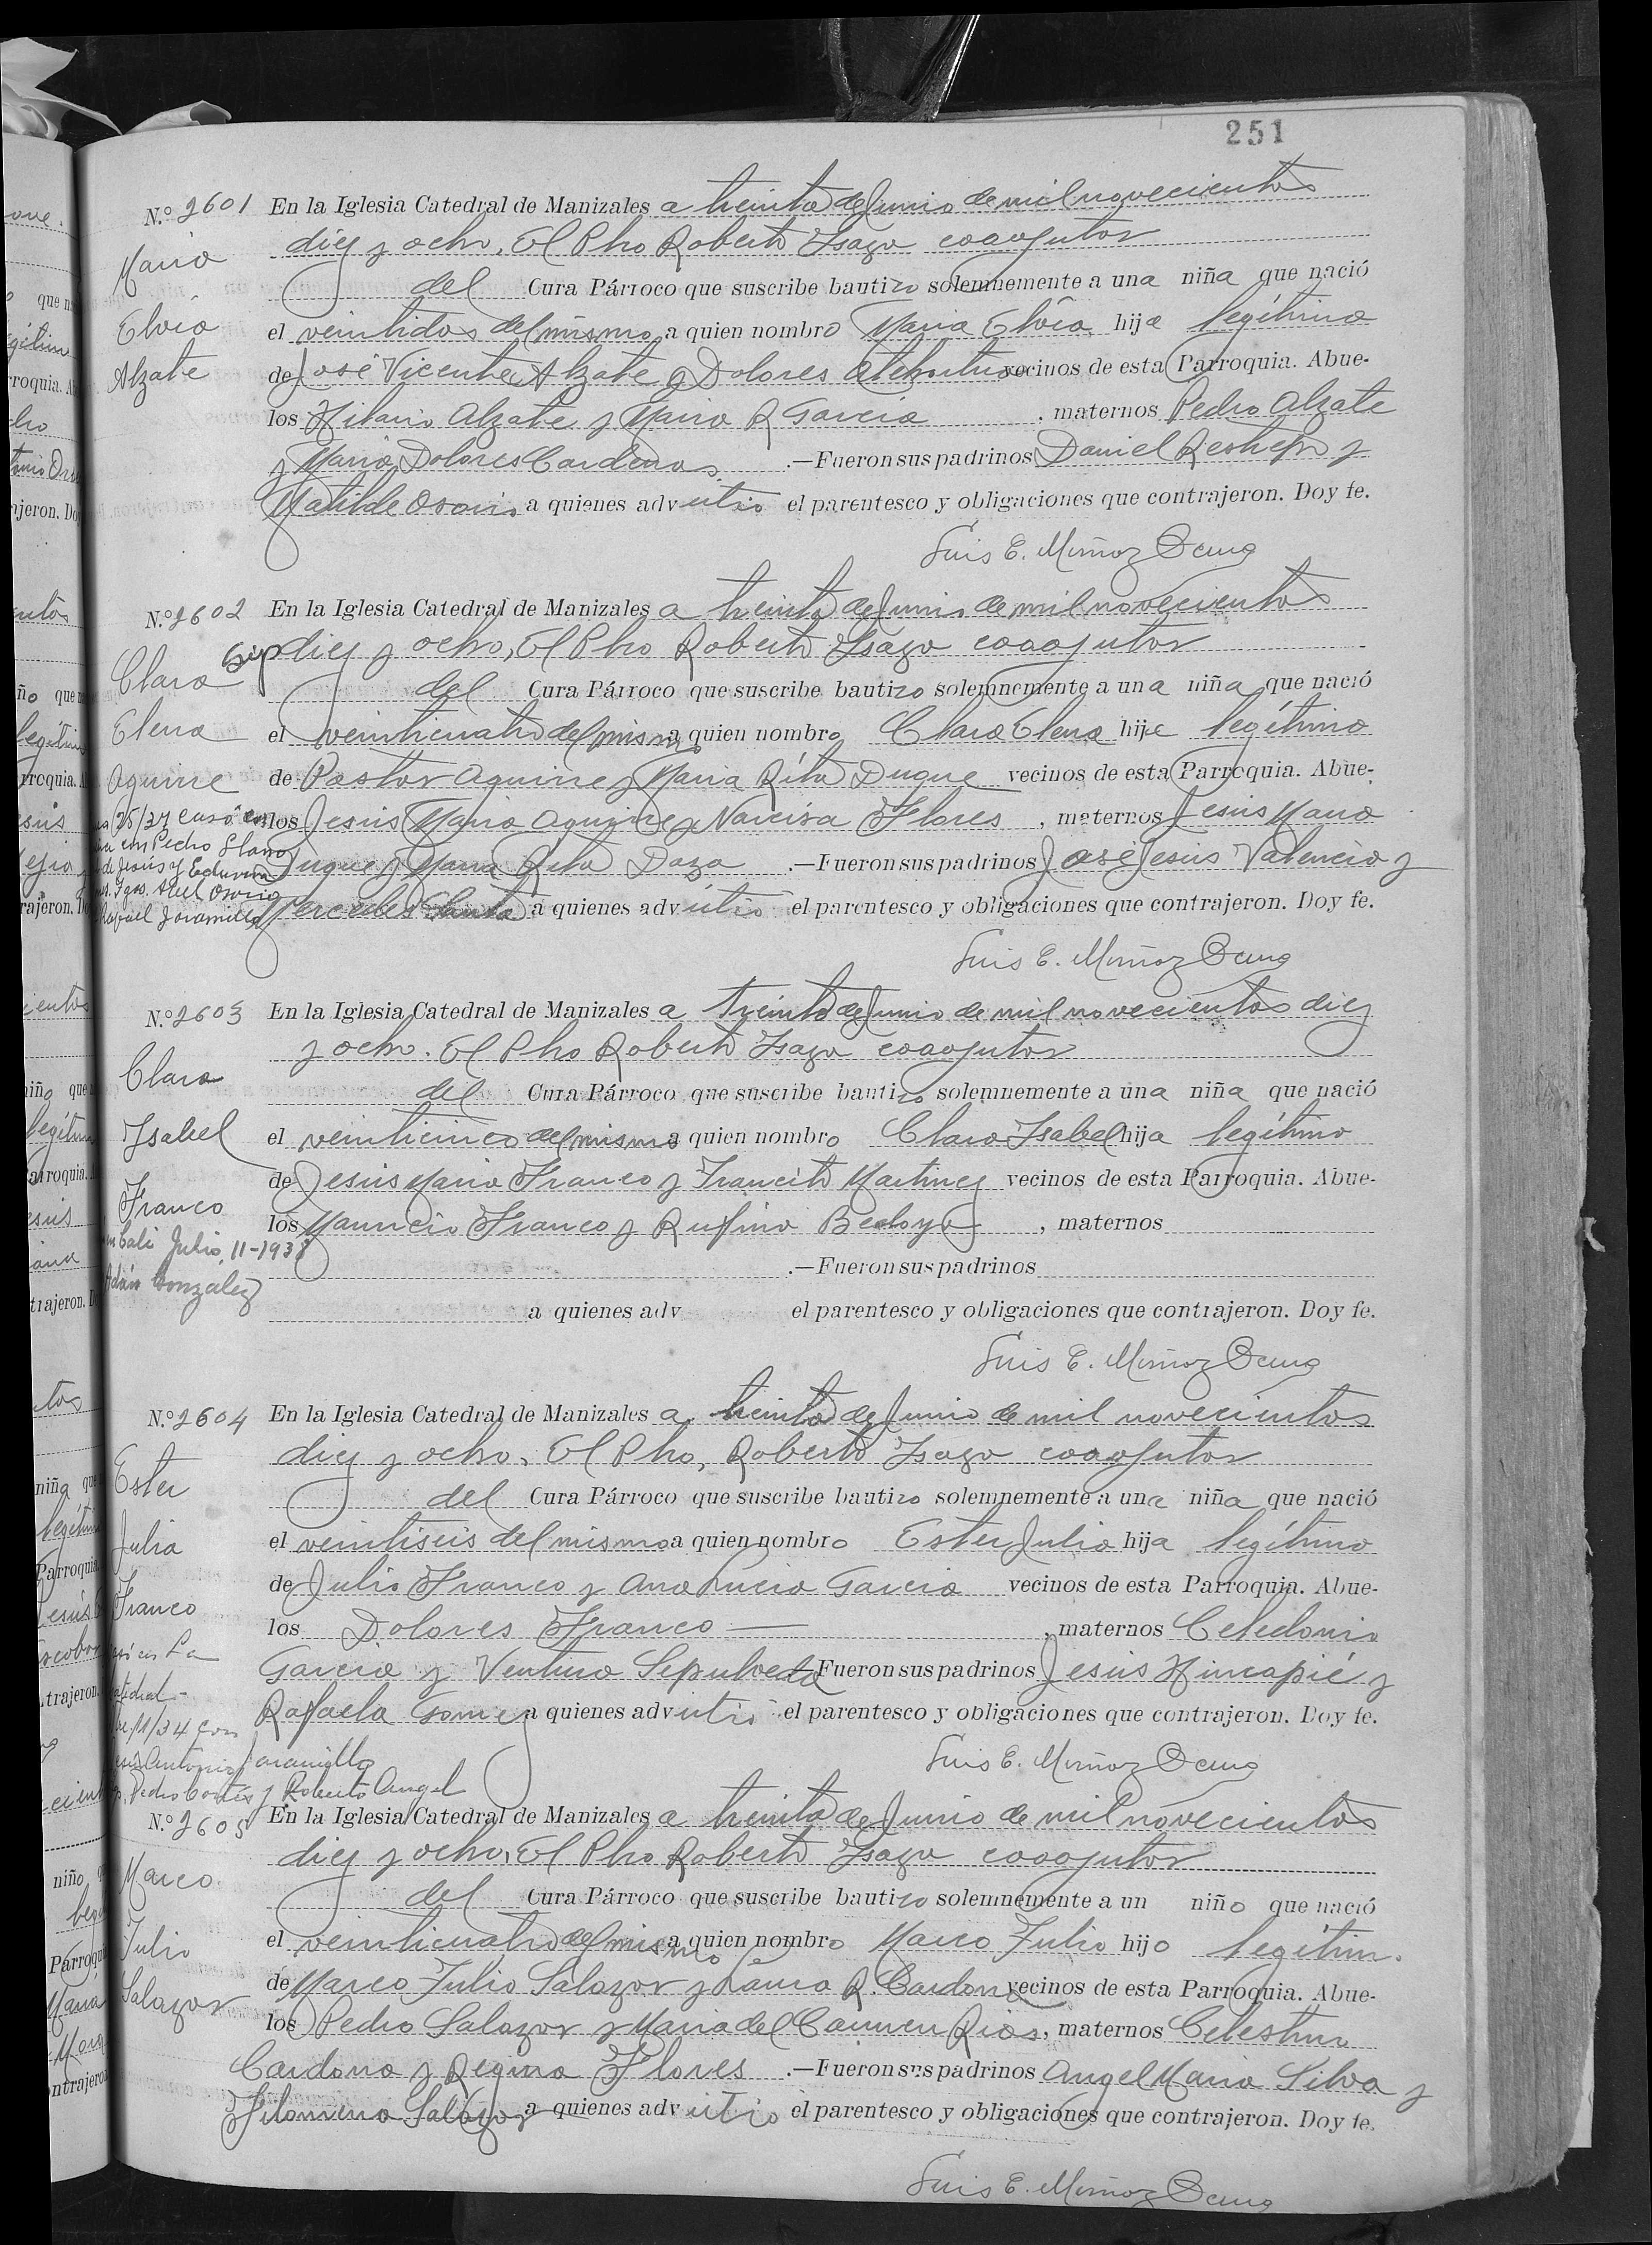 251
N.º 2601 En la Iglesia Catedral de Manizales a treinta de Junio de mil novecientos
diez y ocho, El Pbro Roberto Isaza coadjutor
Maria
del Cura Párroco que suscribe bautizo solemnemente a una niña que nació
Elvia el veintidos del mismo a quien nombro Maria Elvia hija legítima
Alzate de José Vicente Alzate y Dolores vecinos de esta Parroquia. Abue-
los Hilario Alzate y Maria R Garcia, maternos Pedro Alzate
y Maria Dolores Cardenas.—Fueron sus padrinos Daniel Restrepo y
Matilde Osorio a quienes advirtio el parentesco y obligaciones que contrajeron. Doy fe.
Luis E. Muñoz Ocung
N.º 2602 En la Iglesia Catedral de Manizales a treinta de Junio de mil novecientos
diez y ocho, El Pbro Roberto Isaza coadjutor
Clara
del Cura Párroco que suscribe bautizo solemnemente a una niña que nació
Elena el veinticuatro del mismo a quien nombro Clara Elena hija legítima
Aguirre de Pastor Aguirre y Maria Rita Duque vecinos de esta Parroquia. Abue-
25/37 casó con
los Jesus Maria Aguirre y Narcisa Flores, maternos Jesus Maria
Pedro Llano
Duque y Maria Rita Daza.—Fueron sus padrinos José Jesus Valencia y
de Jesús y
Tgos. Abel Osorio
Rafael Jaramillo
Mercedes a quienes advirtio el parentesco y obligaciones que contrajeron. Doy fe.
Luis E. Muñoz Ocung
N.º 2603 En la Iglesia Catedral de Manizales a treinta de Junio de mil novecientos diez
y ocho. El Pbro Roberto Isaza coadjutor
Clara
del Cura Párroco que suscribe bautizo solemnemente a una niña que nació
Isabel el veinticinco del mismo a quien nombro Clara Isabel hija legítima
de Jesus Maria Franco y Francisca Martinez vecinos de esta Parroquia. Abue-
Franco
los Mauricio Franco y Rufina Bedoya, maternos
en Cali Julio 11-1938
.—Fueron sus padrinos
Adán González
a quienes adv el parentesco y obligaciones que contrajeron. Doy fe.
Luis E. Muñoz Ocung
N.º 2604 En la Iglesia Catedral de Manizales a treinta de Junio de mil novecientos
diez y ocho, El Pbro, Roberto Isaza coadjutor
Ester
del Cura Párroco que suscribe bautizo solemnemente a una niña que nació
Julia el veintiseis del mismo a quien nombro Ester Julia hija legítima
de Julio Franco y Ana Lucia Garcia vecinos de esta Parroquia. Abue-
Franco
los Dolores Franco —, maternos Celedonio
en La
Garcia y Ventura Sepulveda—Fueron sus padrinos Jesus Hincapié y
Catedral-
11/34 con
Rafaela Gomez a quienes advirtio el parentesco y obligaciones que contrajeron. Doy fe.
Antonio Jaramillo
Luis E. Muñoz Ocung
Pedro Cortés y Roberto Angel
N.º 2605 En la Iglesia Catedral de Manizales a treinta de Junio de mil novecientos
diez y ocho, El Pbro Roberto Isaza coadjutor
Marco
del Cura Párroco que suscribe bautizo solemnemente a un niño que nació
Julio el veinticuatro del mismo a quien nombro Marco Julio hijo legítimo
Salazar de Marco Julio Salazar y Maria R. Cardona vecinos de esta Parroquia. Abue-
los Pedro Salazar y Maria del Carmen Rios, maternos Celestino
Cardona y Regina Flores.—Fueron sus padrinos Angel Maria Silva y
Filomena Salazar a quienes advirtio el parentesco y obligaciones que contrajeron. Doy fe.
Luis E. Muñoz Ocung